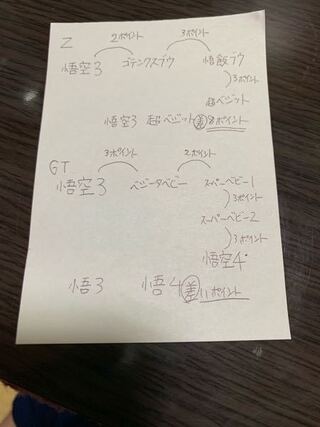 Z
2ポイント 3ポイント
悟空3 ゴテンクスブウ 悟飯ブウ
3ポイント
超ベジット
悟空3 超ベジット 差 8ポイント
GT
3ポイント 2ポイント
悟空3 ベジータベビー スーパーベビー1
3ポイント
スーパーベビー2
3ポイント
悟空4
悟3 悟4 差 11ポイント